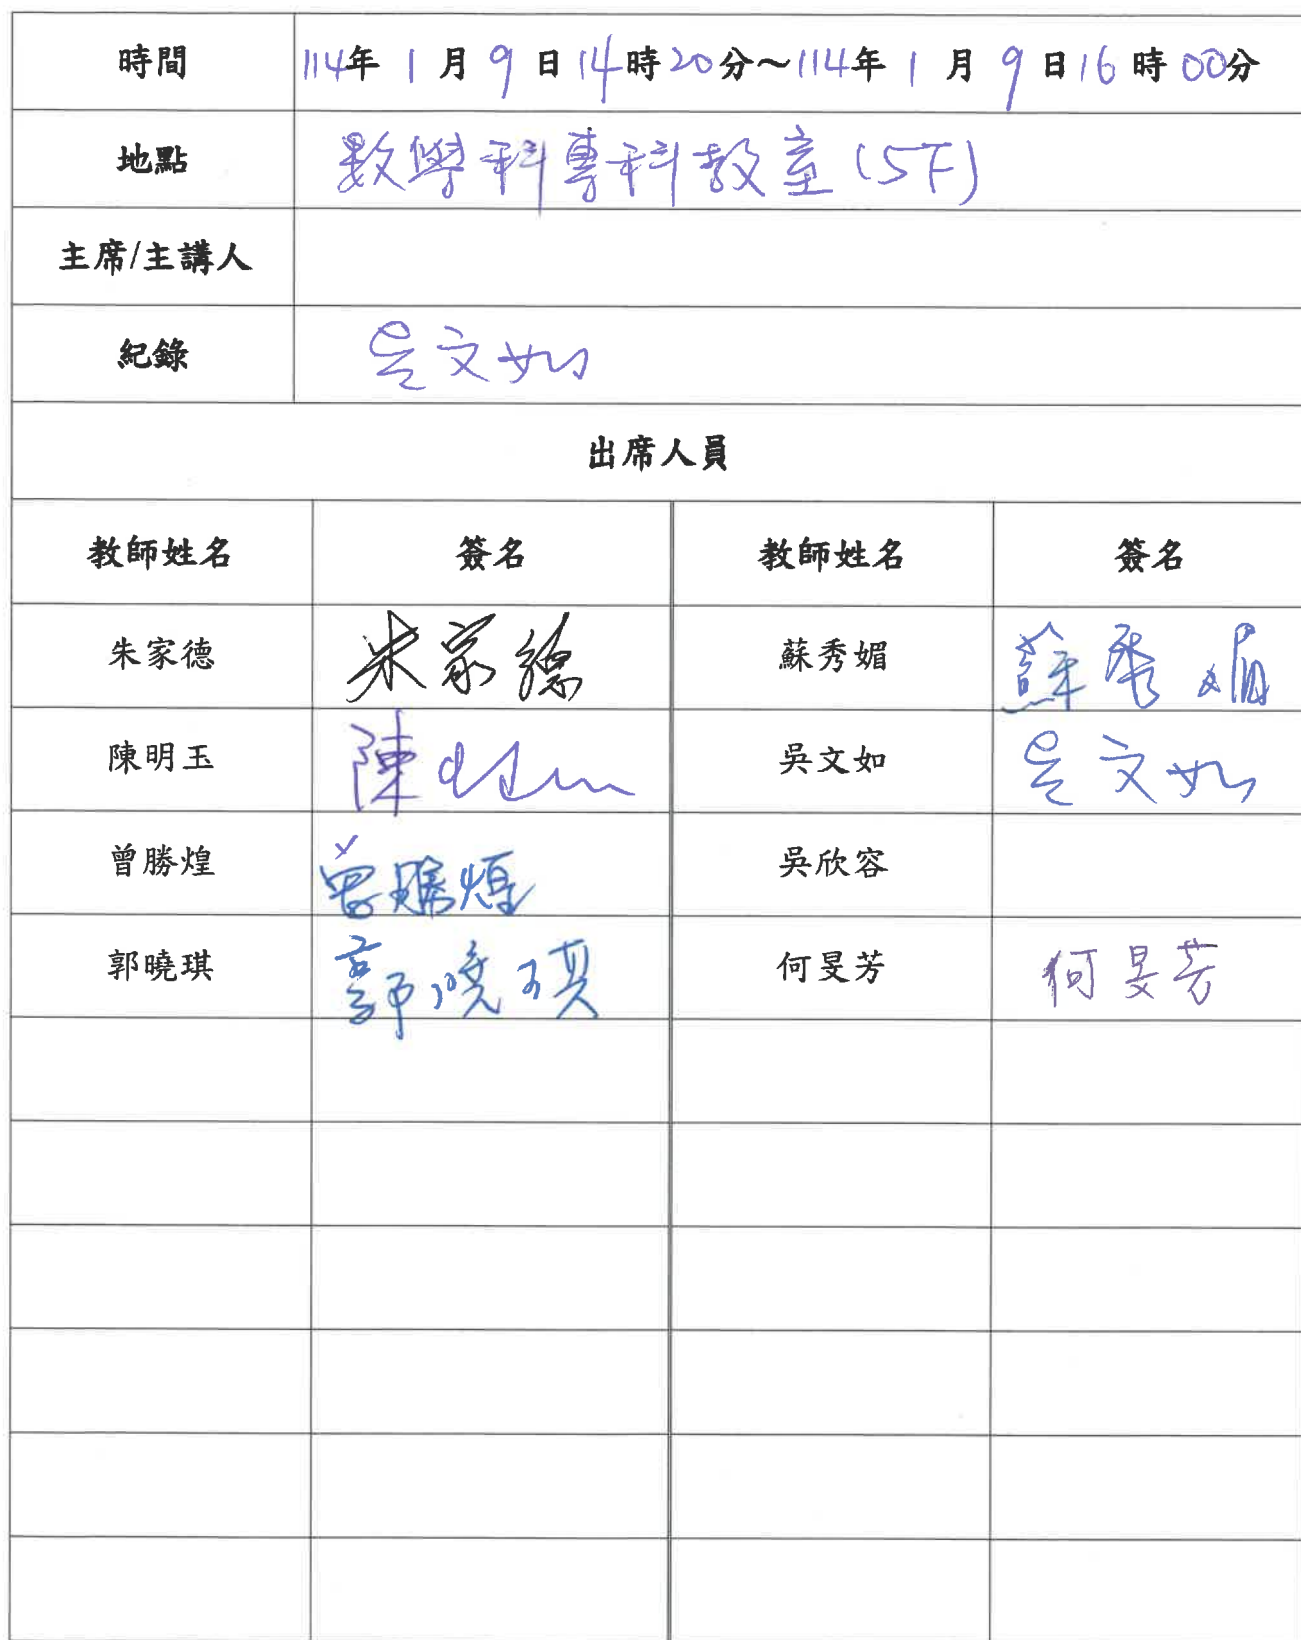 時間 114年 1 月 9 日 14時20分～114年 1 月 9 日 16 時 00分
地點 數學科專科教室(5F)
主席/主講人
紀錄 吳文如
出席人員
教師姓名 簽名 教師姓名 簽名
朱家德 朱家德 蘇秀媚 蘇秀媚
陳明玉 陳 吳文如 吳文如
曾勝煌 曾勝煌 吳欣容
郭曉琪 郭曉琪 何旻芳 何旻芳